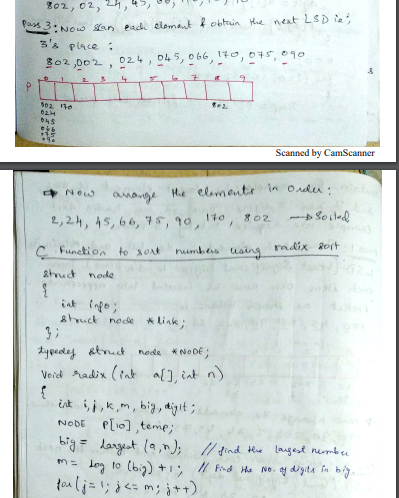 802, 02, 24, 45, 66,
Pass 3: Now scan each element & obtain the next LSD ie;
3's place :
802, 002, 024, 045, 066, 170, 075, 090
0 1 2 3 4 5 6 7 8 9
P
002 170 802
024
045
066
075
090
Scanned by CamScanner
Now arrange the elements in order:
2, 24, 45, 66, 75, 90, 170, 802 → Sorted
C function to sort numbers using radix sort
struct node
{
int info;
struct node *link;
};
typedef struct node *NODE;
void radix (int a[], int n)
{
int i, j, k, m, big, digit;
NODE P[10], temp;
big = largest (a, n); // find the largest number
m = log 10 (big) + 1; // Find the No. of digits in big.
for (j = 1; j <= m; j++)